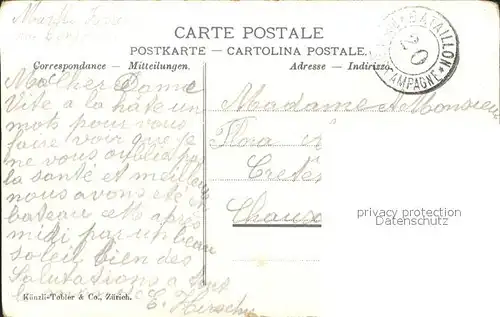 CARTE POSTALE
POSTKARTE – CARTOLINA POSTALE.
Correspondance – Mitteilungen.
Adresse – Indirizzo.
BATAILLON
20
CAMPAGNE
Ma chère Dame
Vite à la hâte un
mots pour vous
faire voir que je
ne vous oublie pas
la santé et meilleur
nous avons été en
bateau cette après
midi par un beau
soleil bien des
Salutations a tout
E.
Madame & Monsieur
Flora
Crétets
Chaux
privacy protection
Datenschutz
Künzli-Tobler & Co., Zürich.